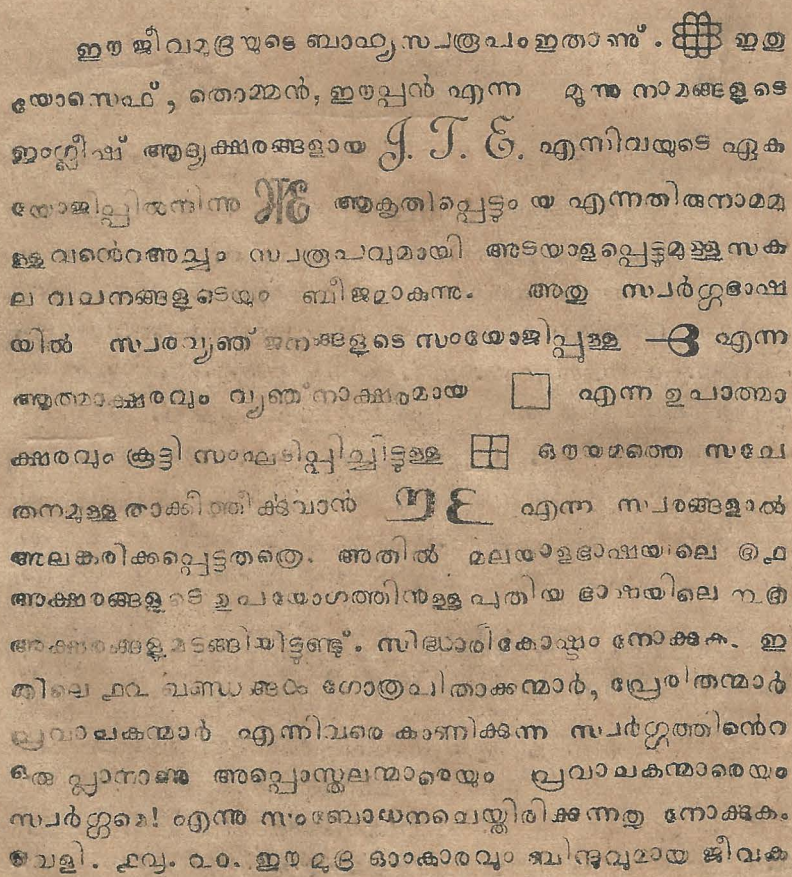 ഈ ജീവമുദ്രയുടെ ബാഹ്യസ്വരൂപം ഇതാണ്. ഇതു
യോസെഫ്, തൊമ്മൻ, ഇയപ്പൻ എന്ന മൂന്നു നാമങ്ങളുടെ
ഇംഗ്ലീഷ് ആദ്യക്ഷരങ്ങളായ J. T. E. എന്നിവയുടെ ഏക
യോജിപ്പിൽനിന്നു JTE ആകൃതിപ്പെട്ടും യ എന്നതിരുനാമമു
ള്ളവൻെറഅച്ചും സ്വരൂപവുമായി അടയാളപ്പെട്ടുമുള്ളസക
ല വചനങ്ങളുടെയും ബീജമാകുന്നു. അതു സ്വർഗ്ഗഭാഷ
യിൽ സ്വരവ്യഞ്ജനങ്ങളുടെ സംയോജിപ്പുള്ള എന്ന
ആത്മാക്ഷരവും വ്യഞ്ജനാക്ഷരമായ എന്ന ഉപാത്മാ
ക്ഷരവും കൂട്ടി സംഘടിപ്പിച്ചിട്ടുള്ള ഔയമത്തെ സചേ
തനമുള്ളതാക്കിത്തീർക്കുവാൻ എന്ന സ്വരങ്ങളാൽ
അലങ്കരിക്കപ്പെട്ടതത്രെ. അതിൽ മലയാളഭാഷയിലെ
അക്ഷരങ്ങളുടെ ഉപയോഗത്തിനുള്ള പുതിയ ഭാഷയിലെ
അക്ഷരങ്ങളുമടങ്ങിയിട്ടുണ്ട്. സിദ്ധാരികോഷ്ടം നോക്കുക. ഇ
തിലെ ൧൨ ഖണ്ഡങ്ങൾ ഗോത്രപിതാക്കന്മാർ, പ്രേരിതന്മാർ
പ്രവാചകന്മാർ എന്നിവരെ കാണിക്കുന്ന സ്വർഗ്ഗത്തിൻെറ
ഒരു പ്ലാനാണു അപ്പൊസ്തലന്മാരെയും പ്രവാചകന്മാരെയും
സ്വർഗ്ഗമെ! എന്നു സംബോധനചെയ്തിരിക്കുന്നതു നോക്കുകം
വെളി. ൧൮. ൨൦. ഈ മുദ്ര ഓംകാരവും ബിന്ദുവുമായ ജീവക